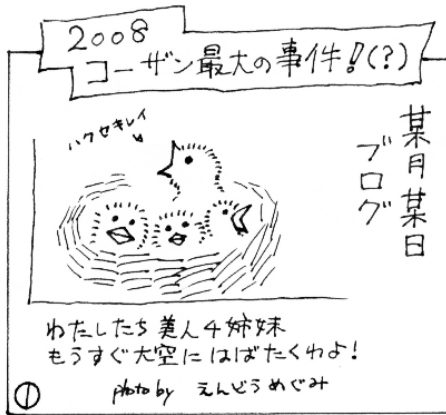 2008
コーザン最大の事件!(?)
某月某日
ブログ
ハクセキレイ
わたしたち美人4姉妹
もうすぐ大空にはばたくわよ!
photo by えんどうめぐみ
①